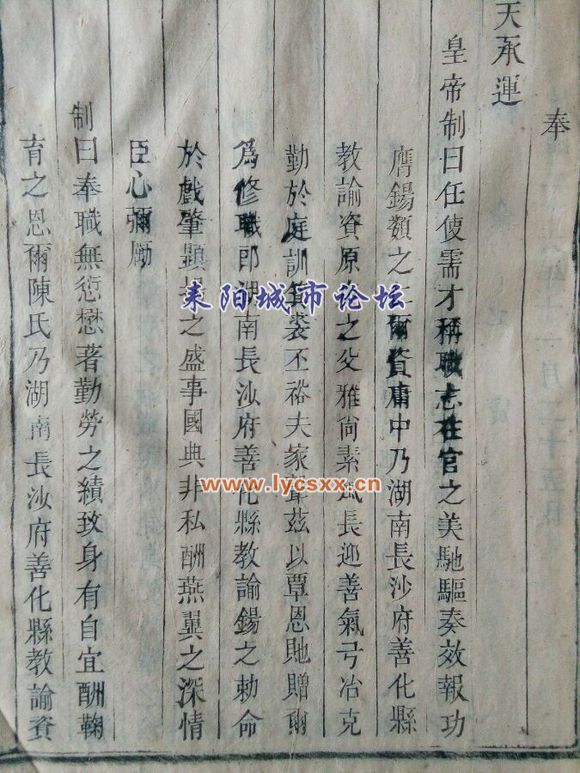 奉
天承運
皇帝制曰任使需才稱職志在官之美馳驅奏效報功
膺錫類之仁爾資庸中乃湖南長沙府善化縣
教諭資原之父雅尚素風長迎善氣弓冶克
勤於庭訓箕裘丕裕夫家聲茲以覃恩貤贈爾
為修職郎湖南長沙府善化縣教諭錫之勅命
於戲肇顯揚之盛事國典非私酬燕翼之深情
臣心彌勵
制曰奉職無愆懋著勤勞之績致身有自宜酬鞠
育之恩爾陳氏乃湖南長沙府善化縣教諭資
耒阳城市论坛
www.lycsxx.cn